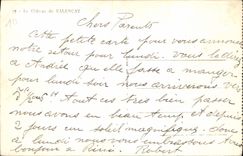 Le Château de VALENÇAY
Chers Parents
Cette petite carte pour vous annoncer
notre retour pour lundi. Vous le direz
à qu'elle fasse à manger
pour lundi soir nous arriverons vers
7h tout est très bien passé
nous avons eu beau temps et depuis
2 jours un soleil magnifique. Donc
à lundi nous vous embrassons tous
bonjour à Robert